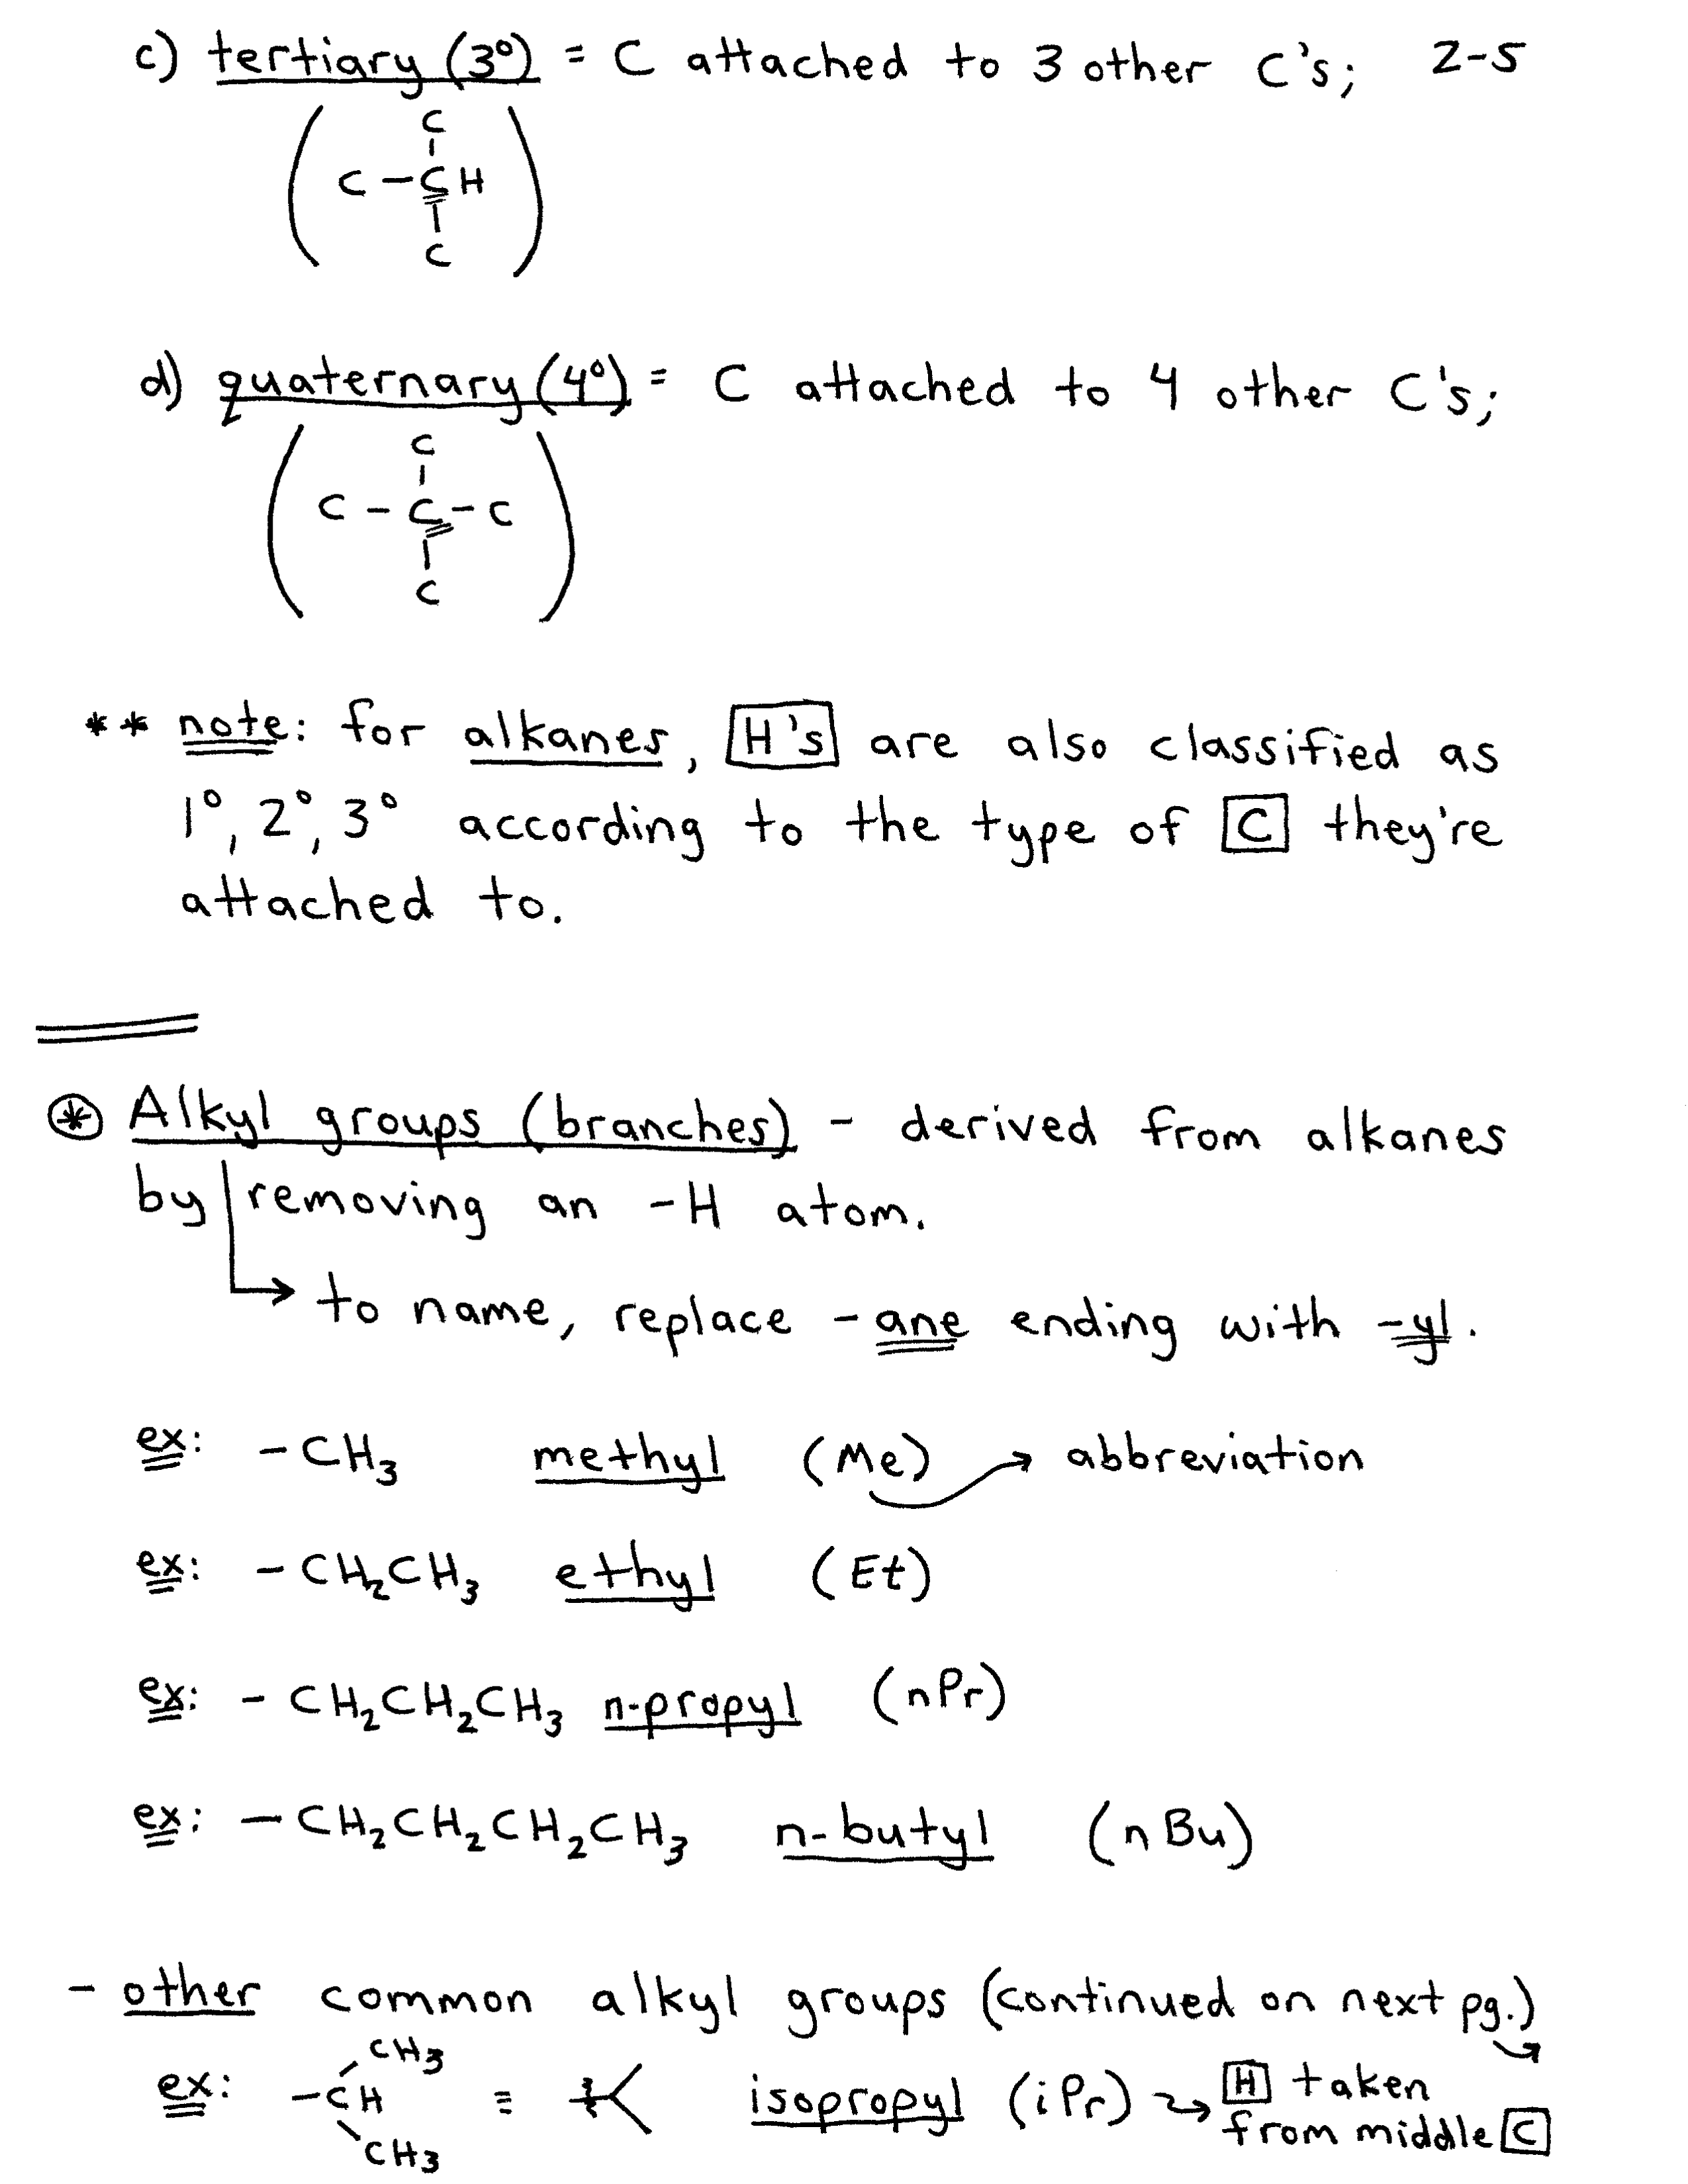 c) tertiary (3°) = C attached to 3 other C's; 2-5
C
C - C H
C
d) quaternary (4°) = C attached to 4 other C's;
C
C - C - C
C
** note: for alkanes, H's are also classified as
1°, 2°, 3° according to the type of C they're
attached to.
* Alkyl groups (branches) - derived from alkanes
by removing an -H atom.
→ to name, replace -ane ending with -yl.
ex: -CH₃ methyl (Me) → abbreviation
ex: -CH₂CH₃ ethyl (Et)
ex: -CH₂CH₂CH₃ n-propyl (nPr)
ex: -CH₂CH₂CH₂CH₃ n-butyl (nBu)
- other common alkyl groups (continued on next pg.)
CH₃
ex: -CH ≡ isopropyl (iPr) → H taken
from middle C
CH₃